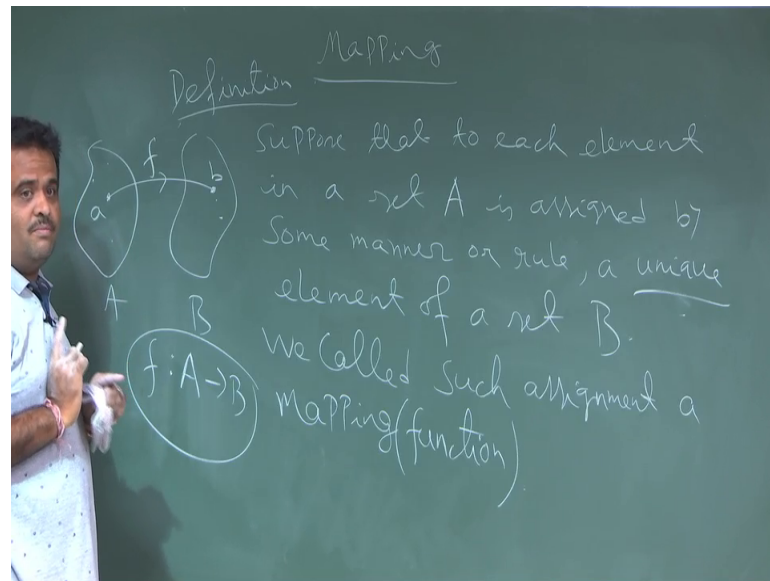 Mapping
Definition
Suppose that to each element
in a set A is assigned by
some manner or rule, a unique
element of a set B.
We called such assignment a
mapping (function)
f
a
b
A
B
f : A → B